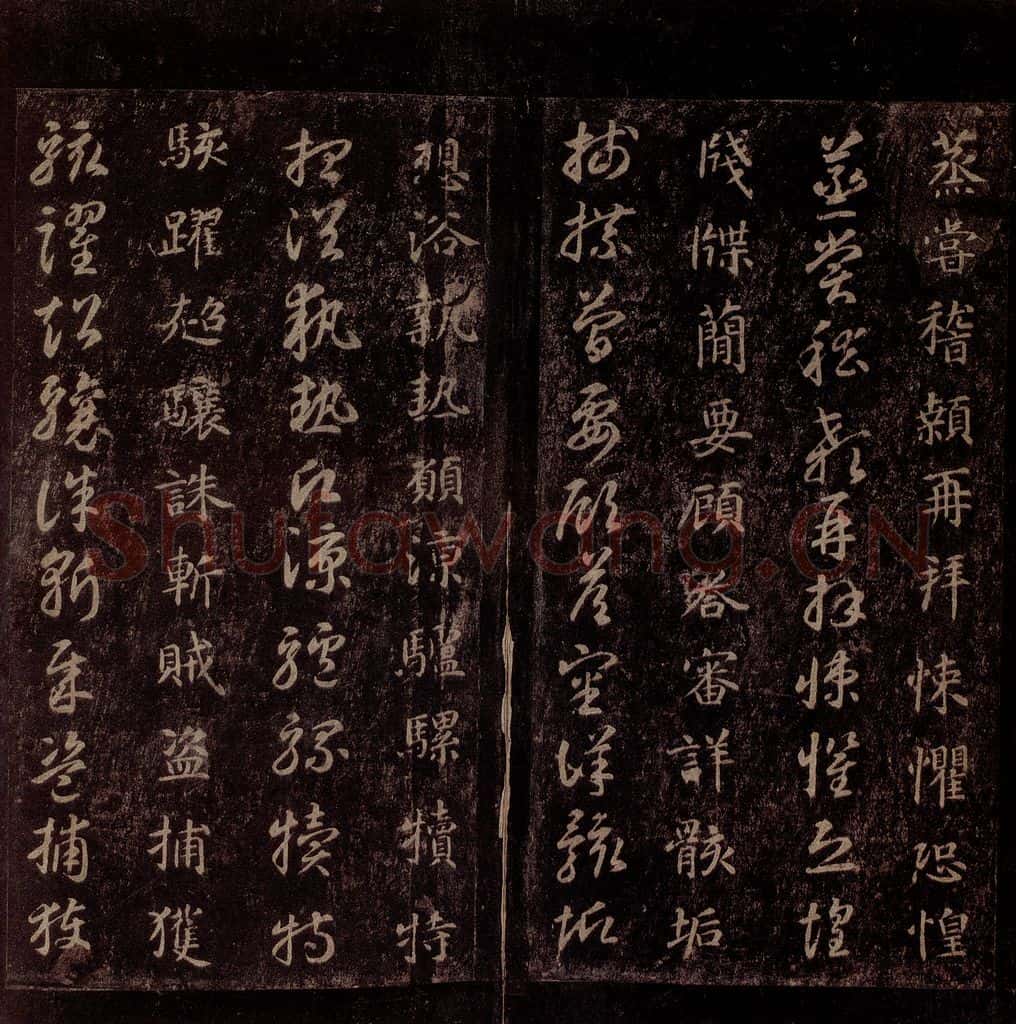 蒸嘗稽顙再拜悚懼恐惶
蒸嘗稽顙再拜悚懼恐惶
牋牒簡要顧答審詳骸垢
牋牒簡要顧答審詳骸垢
想浴執熱願涼驢騾犢特
想浴執熱願涼驢騾犢特
駭躍超驤誅斬賊盜捕獲
駭躍超驤誅斬賊盜捕獲
Shufawang.CN